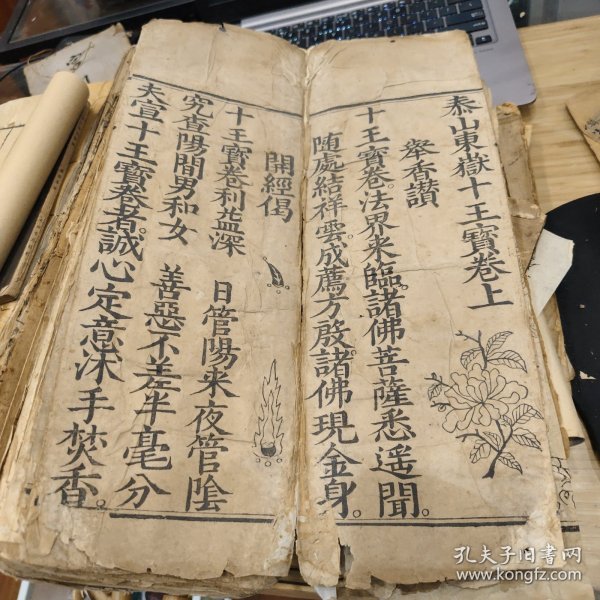 泰山東嶽十王寳卷上
舉香讃
十王寳卷。法界来臨。諸佛菩薩悉遥聞。
随處結祥雲。成薦方殷。諸佛現金身。
開經偈
十王寳卷利益深 日管陽来夜管陰
究查陽間男和女 善惡不差半毫分
夫宣十王寳卷者。誠心定意。沐手焚香。
孔夫子旧書网
www.kongfz.com